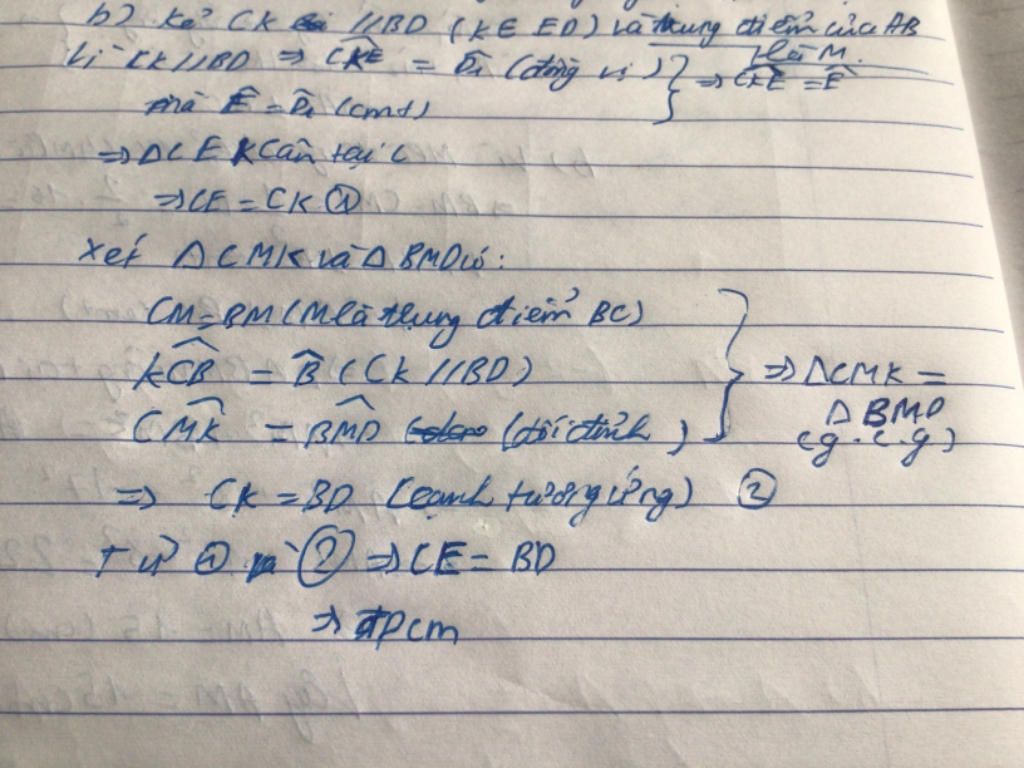 b) Kẻ CK // BD (K ∈ ED) và trung điểm của AB là M.
Vì CK // BD ⇒ CKE = D̂₁ (đồng vị) } ⇒ CKE = Ê
mà Ê = D̂₁ (cmt)
⇒ ΔCEK cân tại C
⇒ CE = CK ①
Xét ΔCMK và ΔBMD có:
CM = BM (M là trung điểm BC)
KCB = B̂ (CK // BD)
CMK = BMD (đối đỉnh) } ⇒ ΔCMK = ΔBMD (g.c.g)
⇒ CK = BD (cạnh tương ứng) ②
Từ ① và ② ⇒ CE = BD
⇒ đpcm